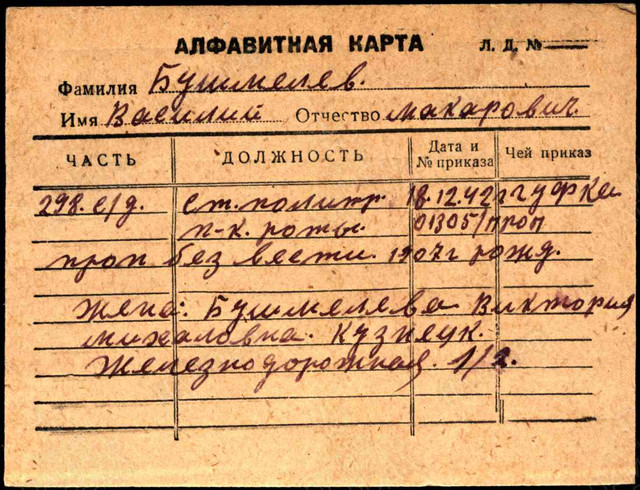 АЛФАВИТНАЯ КАРТА Л. Д. №
Фамилия Бушмелев.
Имя Василий Отчество Макарович.
ЧАСТЬ ДОЛЖНОСТЬ Дата и № приказа Чей приказ
298. с/д. ст. политр. 18.12.42г ГУФКа
п-к. роты. 01305/проп
проп без вести. 1907г рожд.
Жена: Бушмелева Виктория
Михаловна. Кузнецк.
Железнодорожная. 1/2.